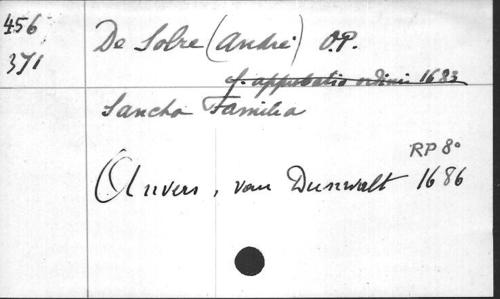 456
371
De Solre (André) O.P.
f. approbatio ordinis 1683
Sancta Familia
RP 8°
Anvers, van Dunwalt 1686